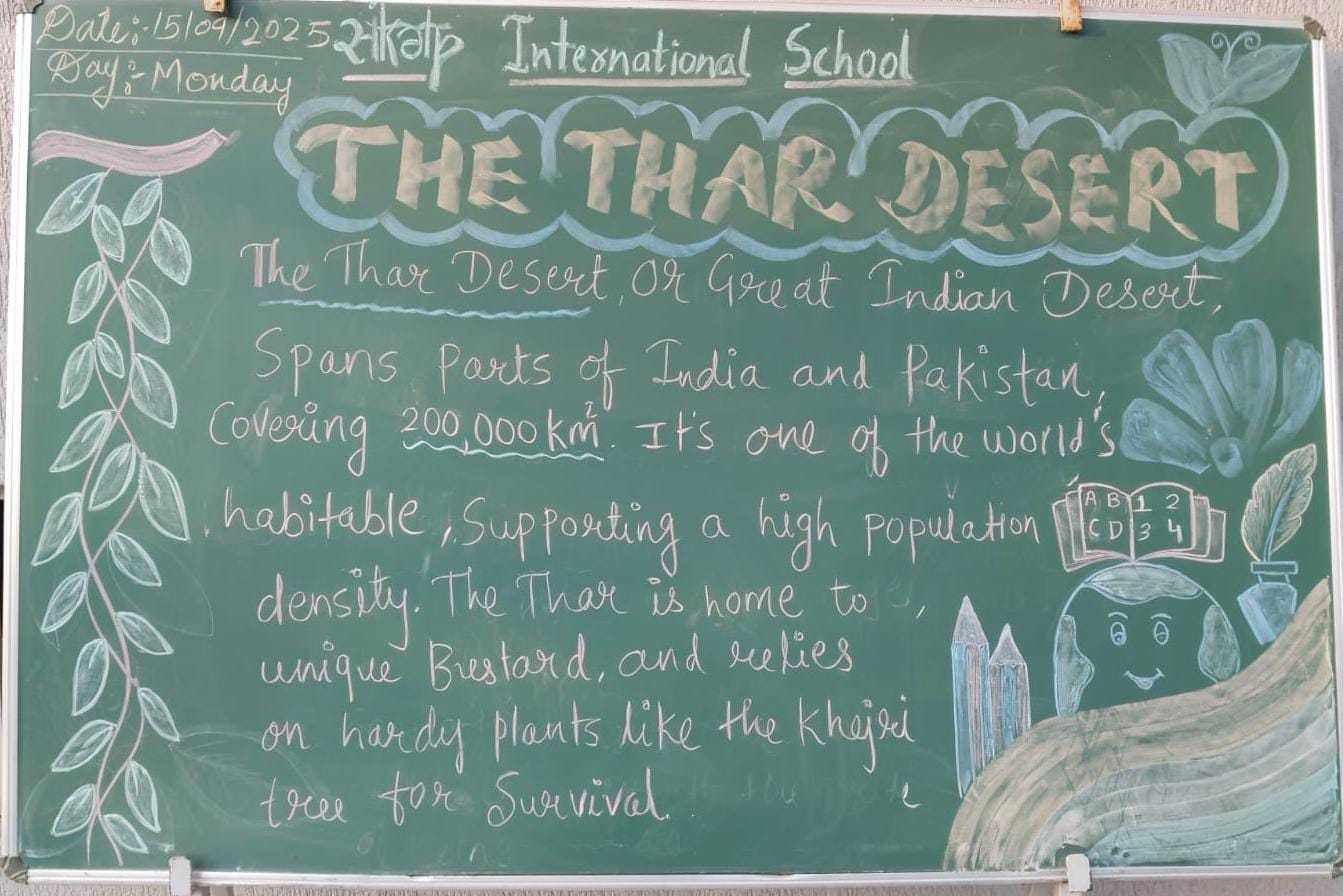 Date:-15/09/2025
Day:-Monday
संकल्प International School
THE THAR DESERT
The Thar Desert, Or Great Indian Desert,
Spans parts of India and Pakistan,
Covering 200,000 km². It's one of the world's
habitable, Supporting a high population
density. The Thar is home to ,
unique Bustard, and relies
on hardy plants like the Khejri
tree for Survival.
A B 1 2
C D 3 4